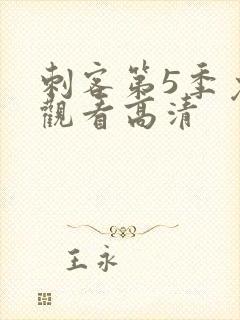 刺客第5季
觀看高清
王永